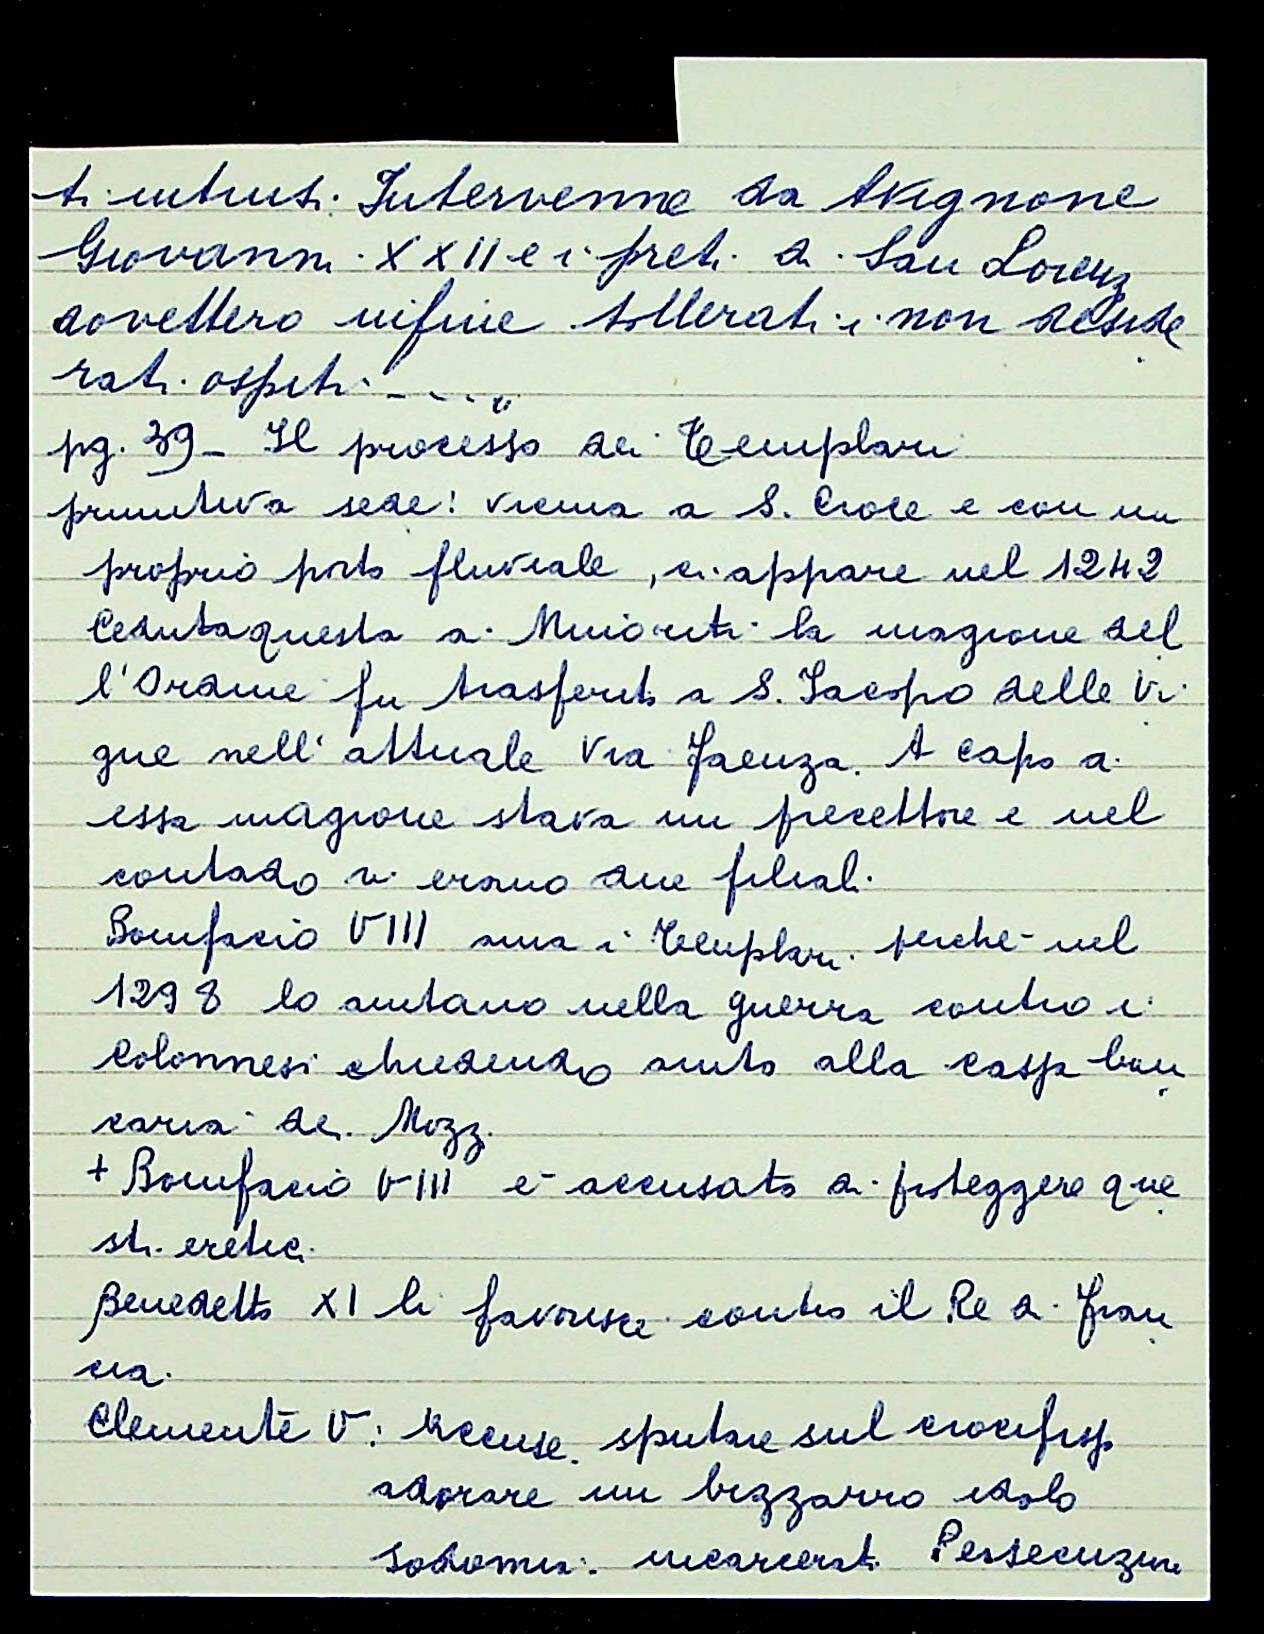 ti intrusi. Intervenne da Avignone
Giovanni XXII e i preti di San Lorenz
dovettero infine tollerati i non deside
rati ospiti - - - - "
pg. 39 - Il processo dei Templari
primitiva sede: vicina a S. Croce e con un
proprio porto fluviale, ci appare nel 1242
Ceduta questa ai Minoriti la magione del
l'Ordine fu trasferita a S. Jacopo delle Vi
gne nell'attuale Via Faenza. A capo di
essa magione stava un precettore e nel
contado vi erano due filiali.
Bonifacio VIII ama i Templari perchè nel
1298 lo aiutano nella guerra contro i
Colonnesi chiedendo aiuto alla cassa ban
caria dei Mozzi
+ Bonifacio VIII è accusato di proteggere que
sti eretici
Benedetto XI li favorisce contro il Re di Fran
cia.
Clemente V: Accuse. sputare sul crocifisso
adorare un bizzarro idolo
sodomia: incarcerati Persecuzione